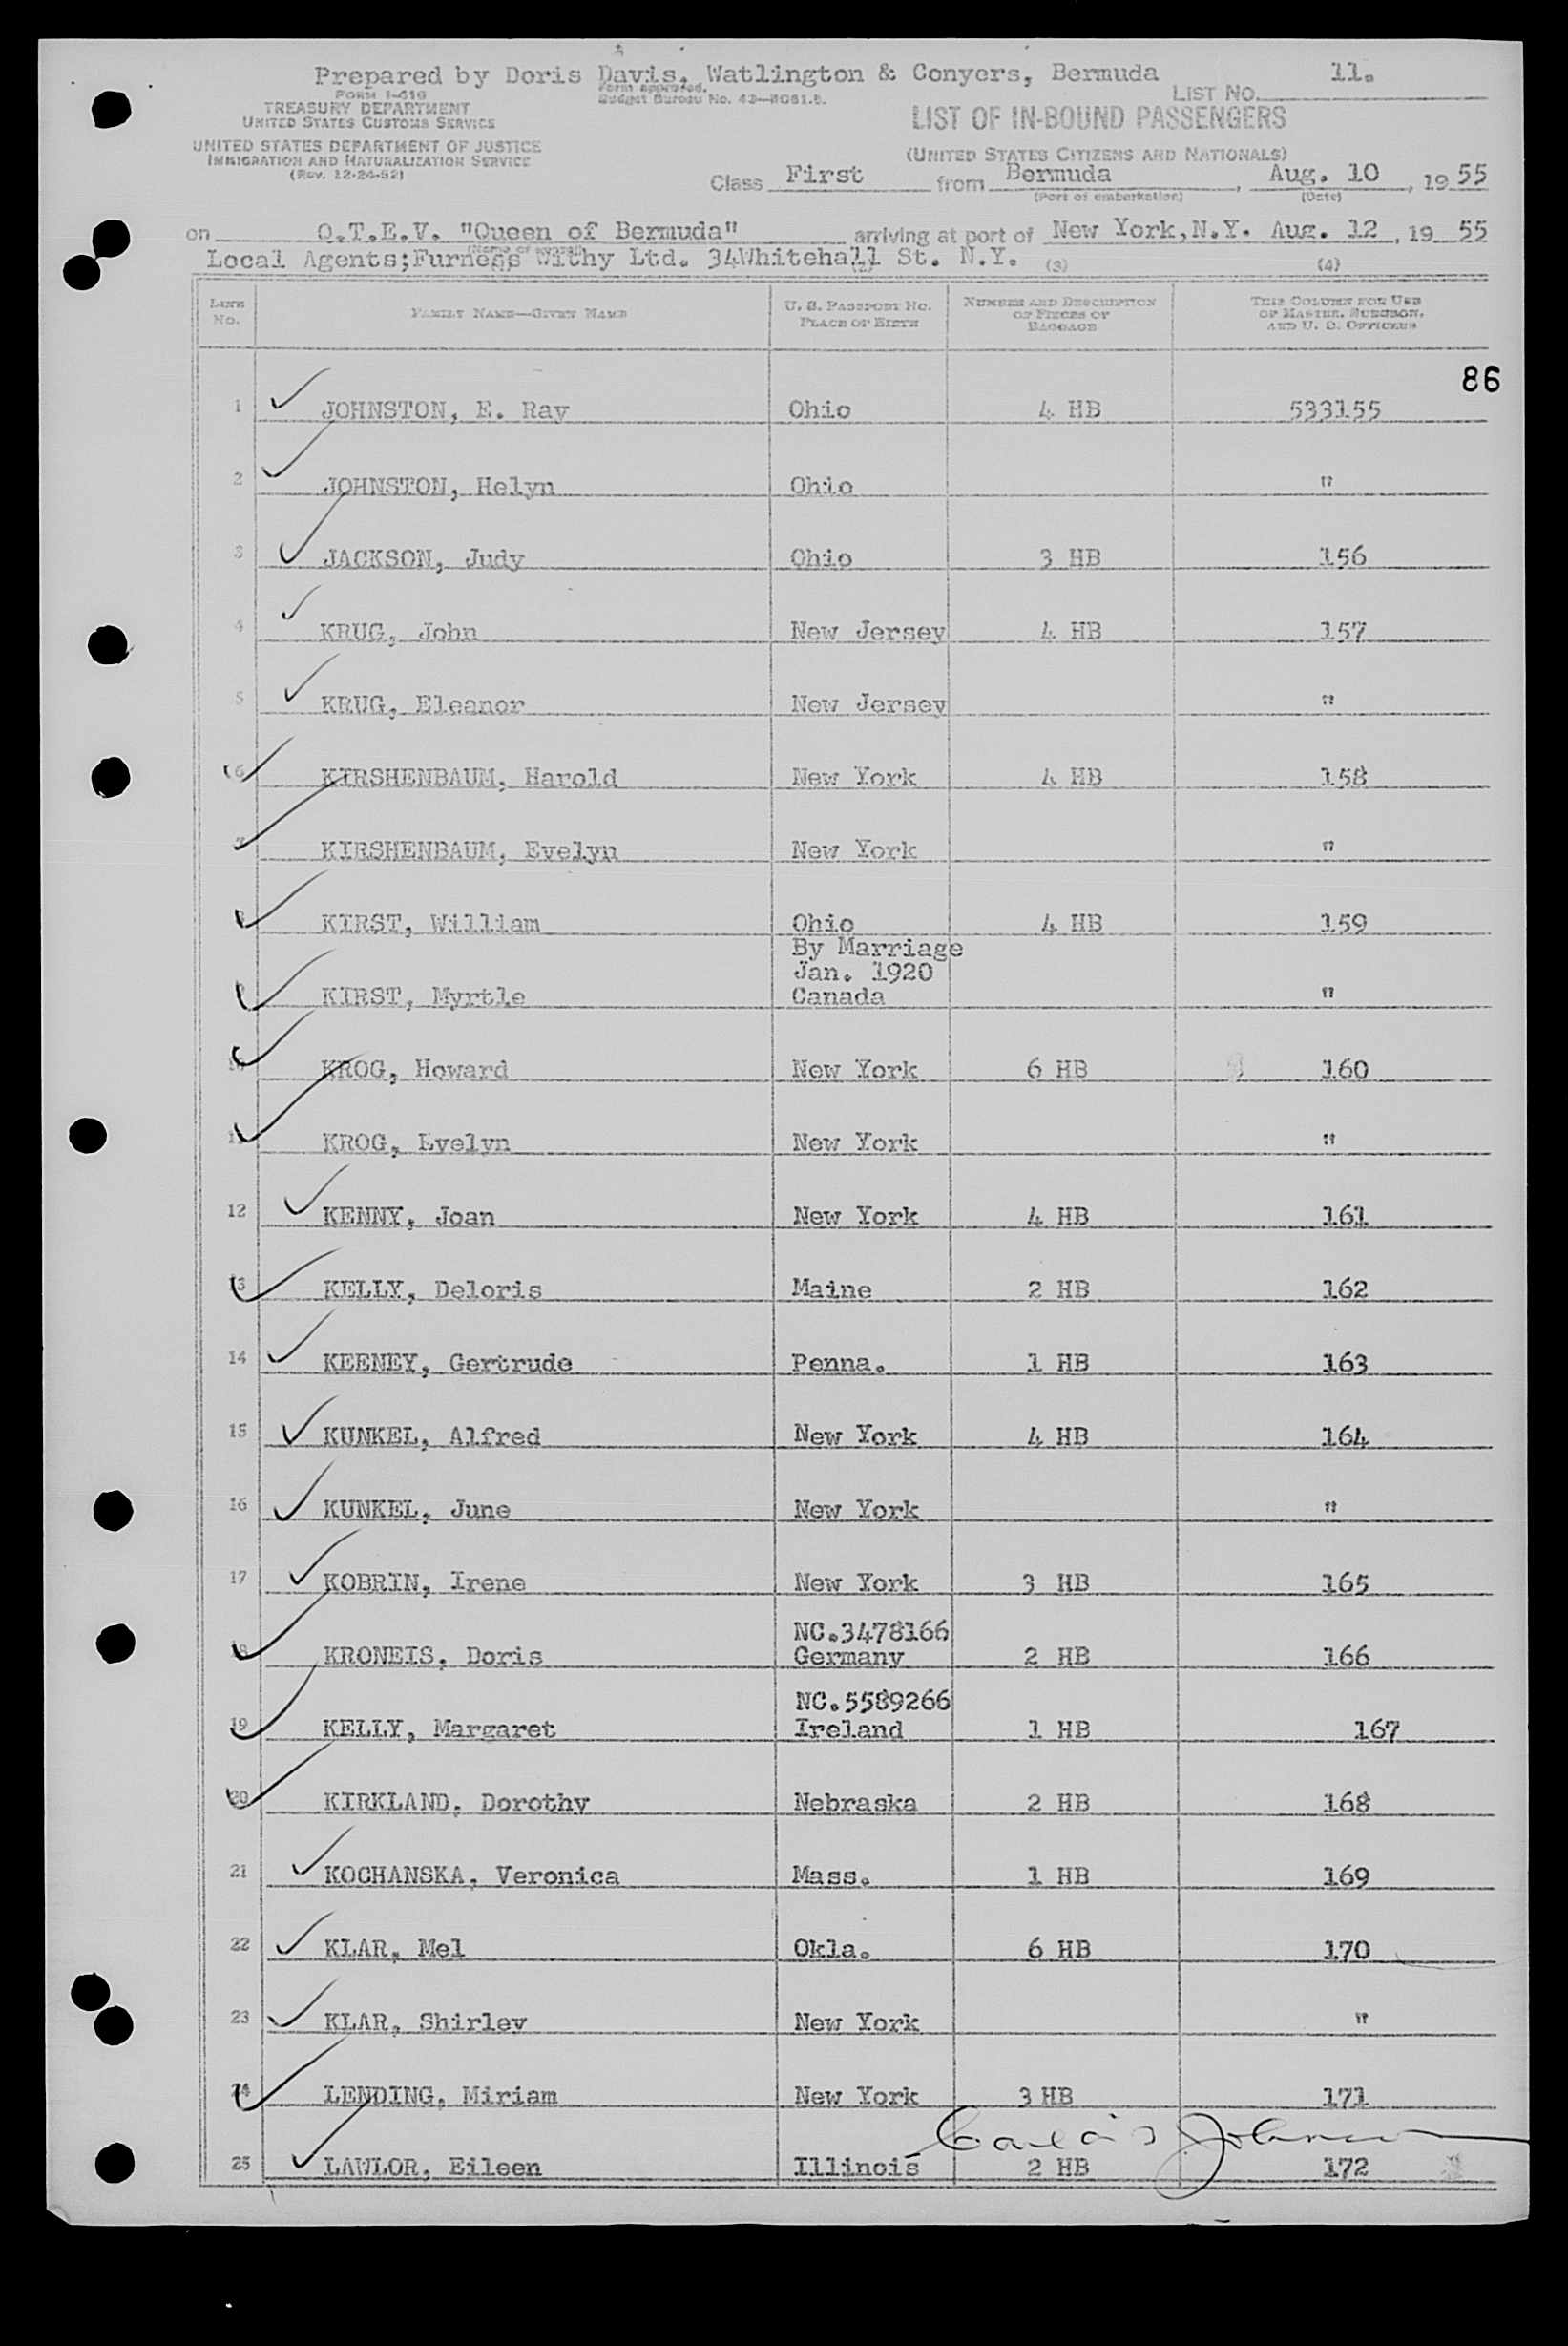 Prepared by Doris Davis, Watlington & Conyers, Bermuda 11.
FORM I-416 Form approved. LIST No.
TREASURY DEPARTMENT Budget Bureau No. 43-R061.5.
UNITED STATES CUSTOMS SERVICE LIST OF IN-BOUND PASSENGERS
UNITED STATES DEPARTMENT OF JUSTICE
IMMIGRATION AND NATURALIZATION SERVICE (UNITED STATES CITIZENS AND NATIONALS)
(Rev. 12-24-52) Class First from Bermuda, Aug. 10, 19 55
(Port of embarkation) (Date)
on Q.T.E.V. "Queen of Bermuda" arriving at port of New York, N.Y. Aug. 12, 19 55
(Name of vessel)
Local Agents;Furness Withy Ltd. 34Whitehall St. N.Y. (3) (4)
LINE No. FAMILY NAME—GIVEN NAME U. S. PASSPORT NO. PLACE OF BIRTH NUMBER AND DESCRIPTION OF PIECES OF BAGGAGE THIS COLUMN FOR USE OF MASTER, SURGEON, AND U. S. OFFICERS
86
1 JOHNSTON, E. Ray Ohio 4 HB 533155
2 JOHNSTON, Helyn Ohio "
3 JACKSON, Judy Ohio 3 HB 156
4 KRUG, John New Jersey 4 HB 157
5 KRUG, Eleanor New Jersey "
6 KIRSHENBAUM, Harold New York 4 HB 158
7 KIRSHENBAUM, Evelyn New York "
8 KIRST, William Ohio 4 HB 159
By Marriage
Jan. 1920
9 KIRST, Myrtle Canada "
10 KROG, Howard New York 6 HB 160
11 KROG, Evelyn New York "
12 KENNY, Joan New York 4 HB 161
13 KELLY, Deloris Maine 2 HB 162
14 KEENEY, Gertrude Penna. 1 HB 163
15 KUNKEL, Alfred New York 4 HB 164
16 KUNKEL, June New York "
17 KOBRIN, Irene New York 3 HB 165
NC.3478166
18 KRONEIS, Doris Germany 2 HB 166
NC.5589266
19 KELLY, Margaret Ireland 1 HB 167
20 KIRKLAND, Dorothy Nebraska 2 HB 168
21 KOCHANSKA, Veronica Mass. 1 HB 169
22 KLAR, Mel Okla. 6 HB 170
23 KLAR, Shirley New York "
24 LENDING, Miriam New York 3 HB 171
25 LAWLOR, Eileen Illinois 2 HB 172